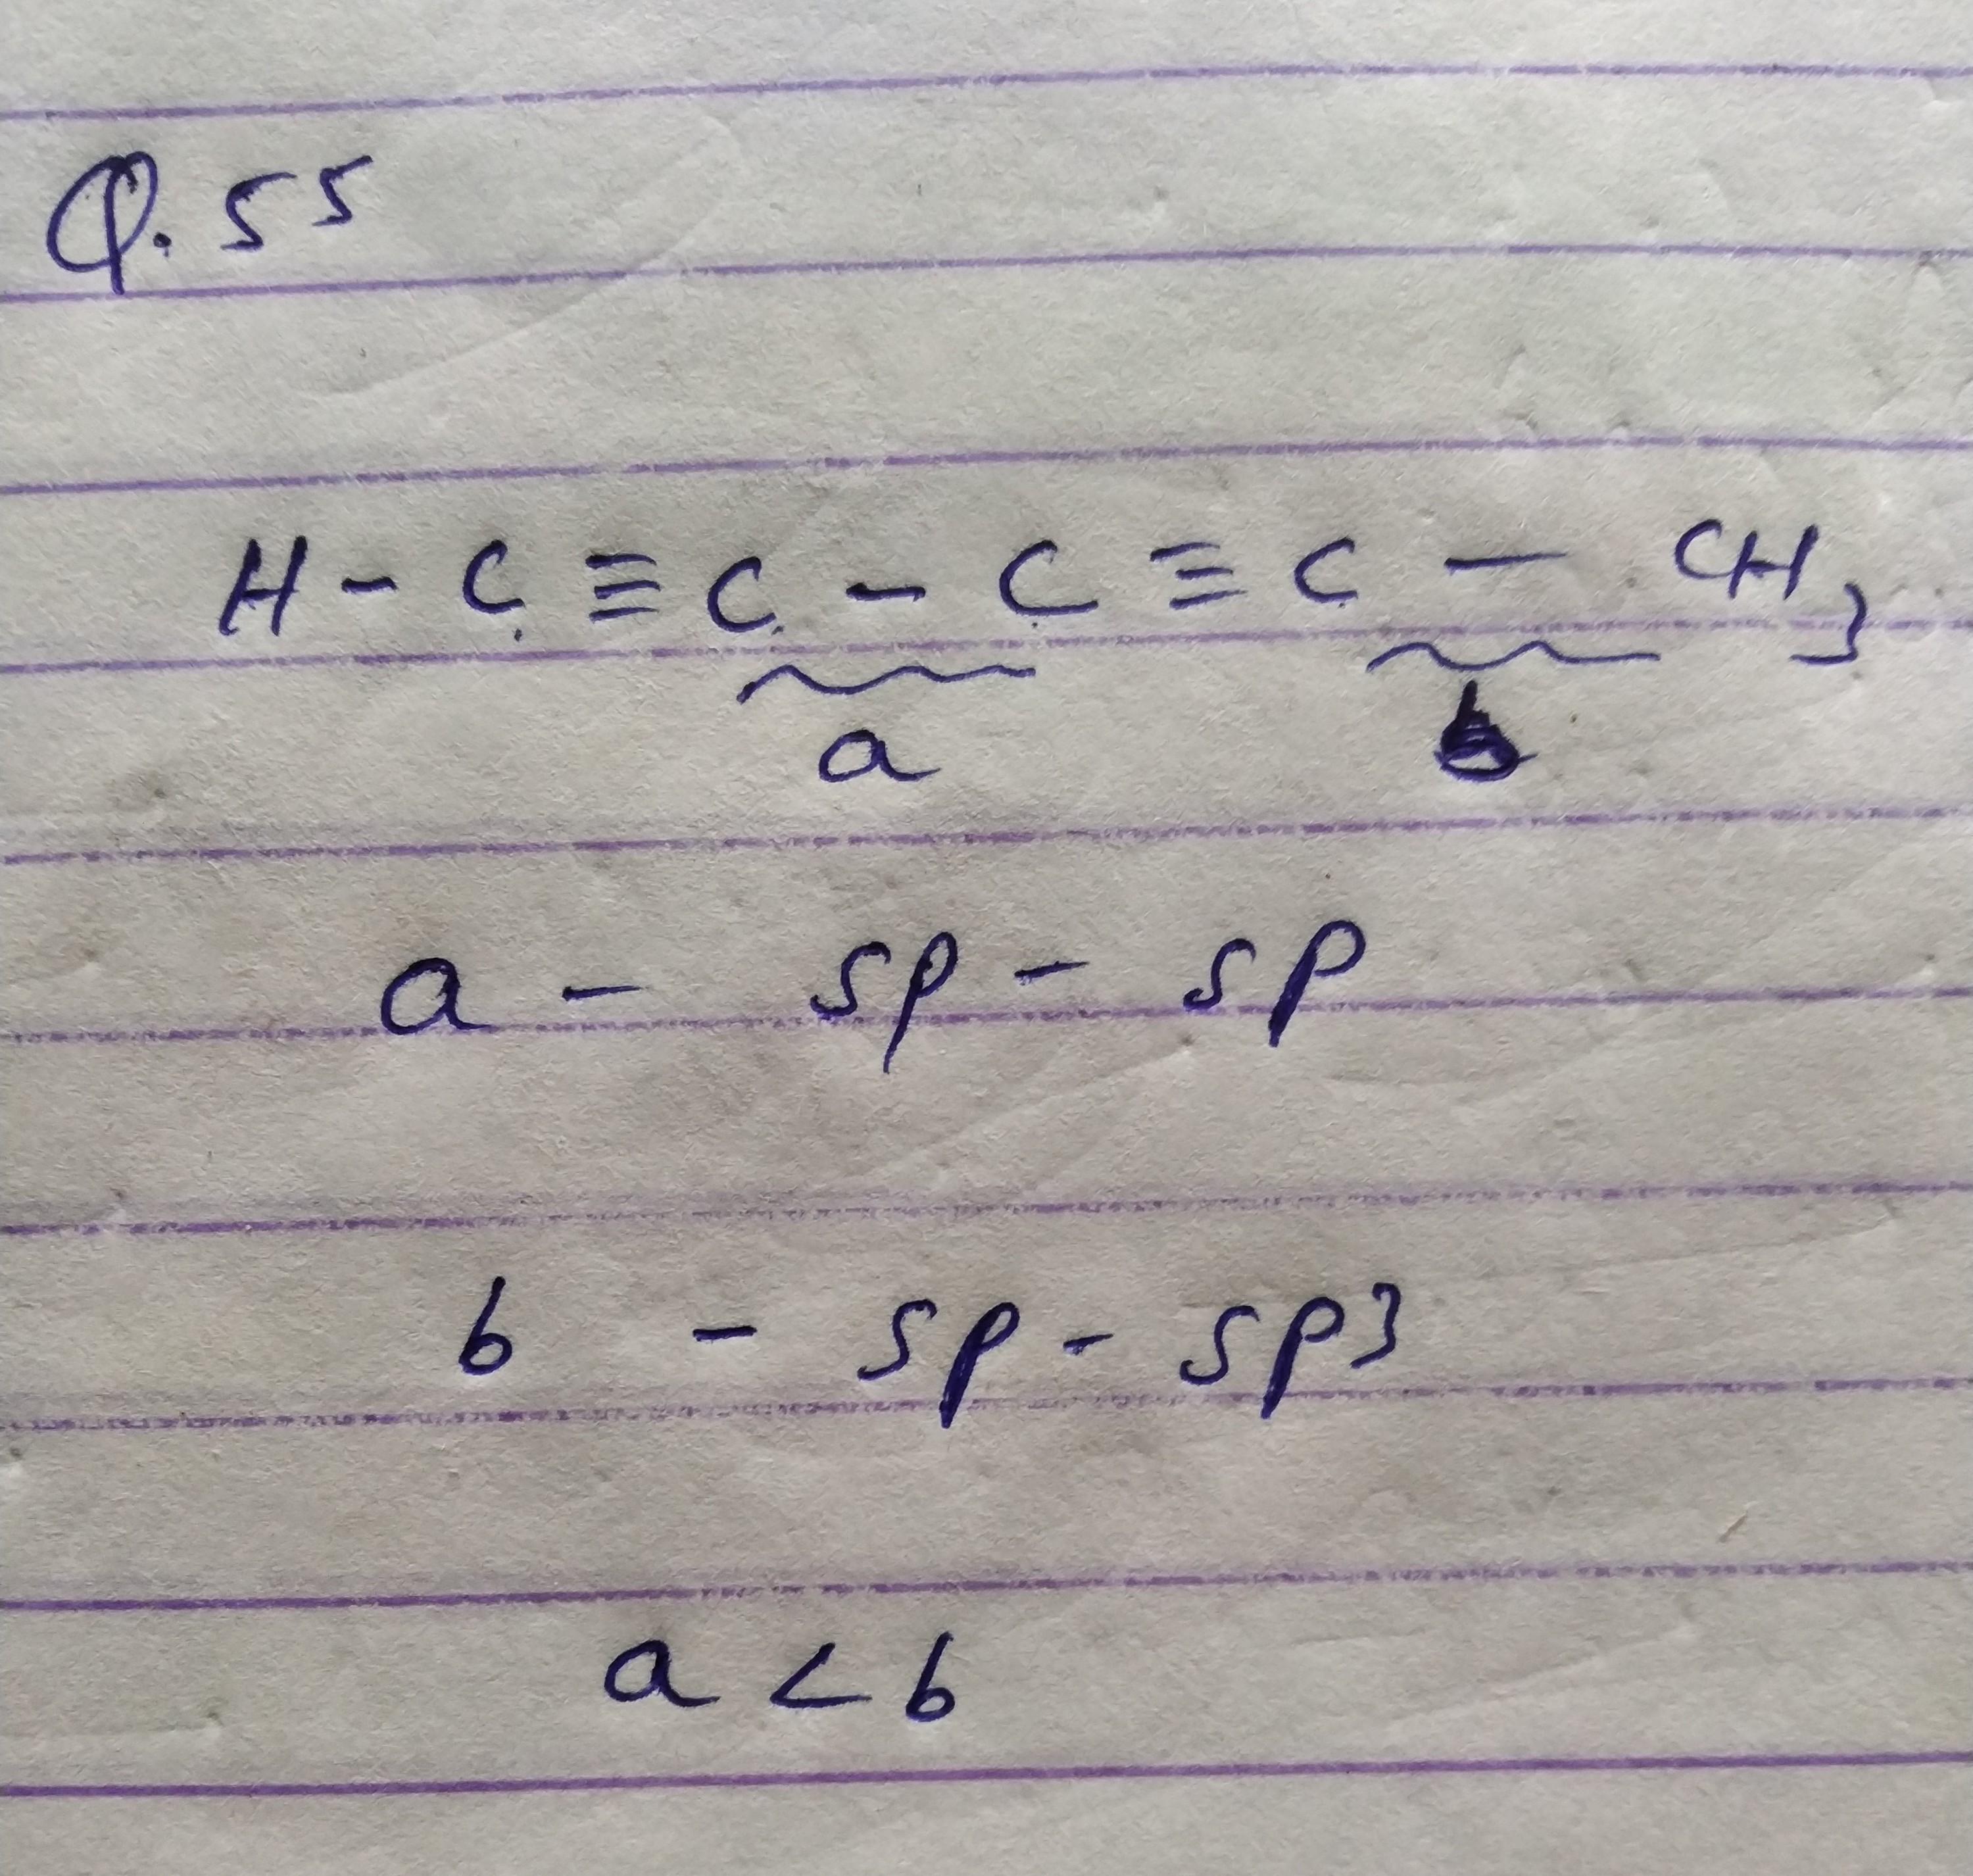 Q. 55
H - C ≡ C - C ≡ C - CH3
a b
a - sp - sp
b - sp - sp3
a < b